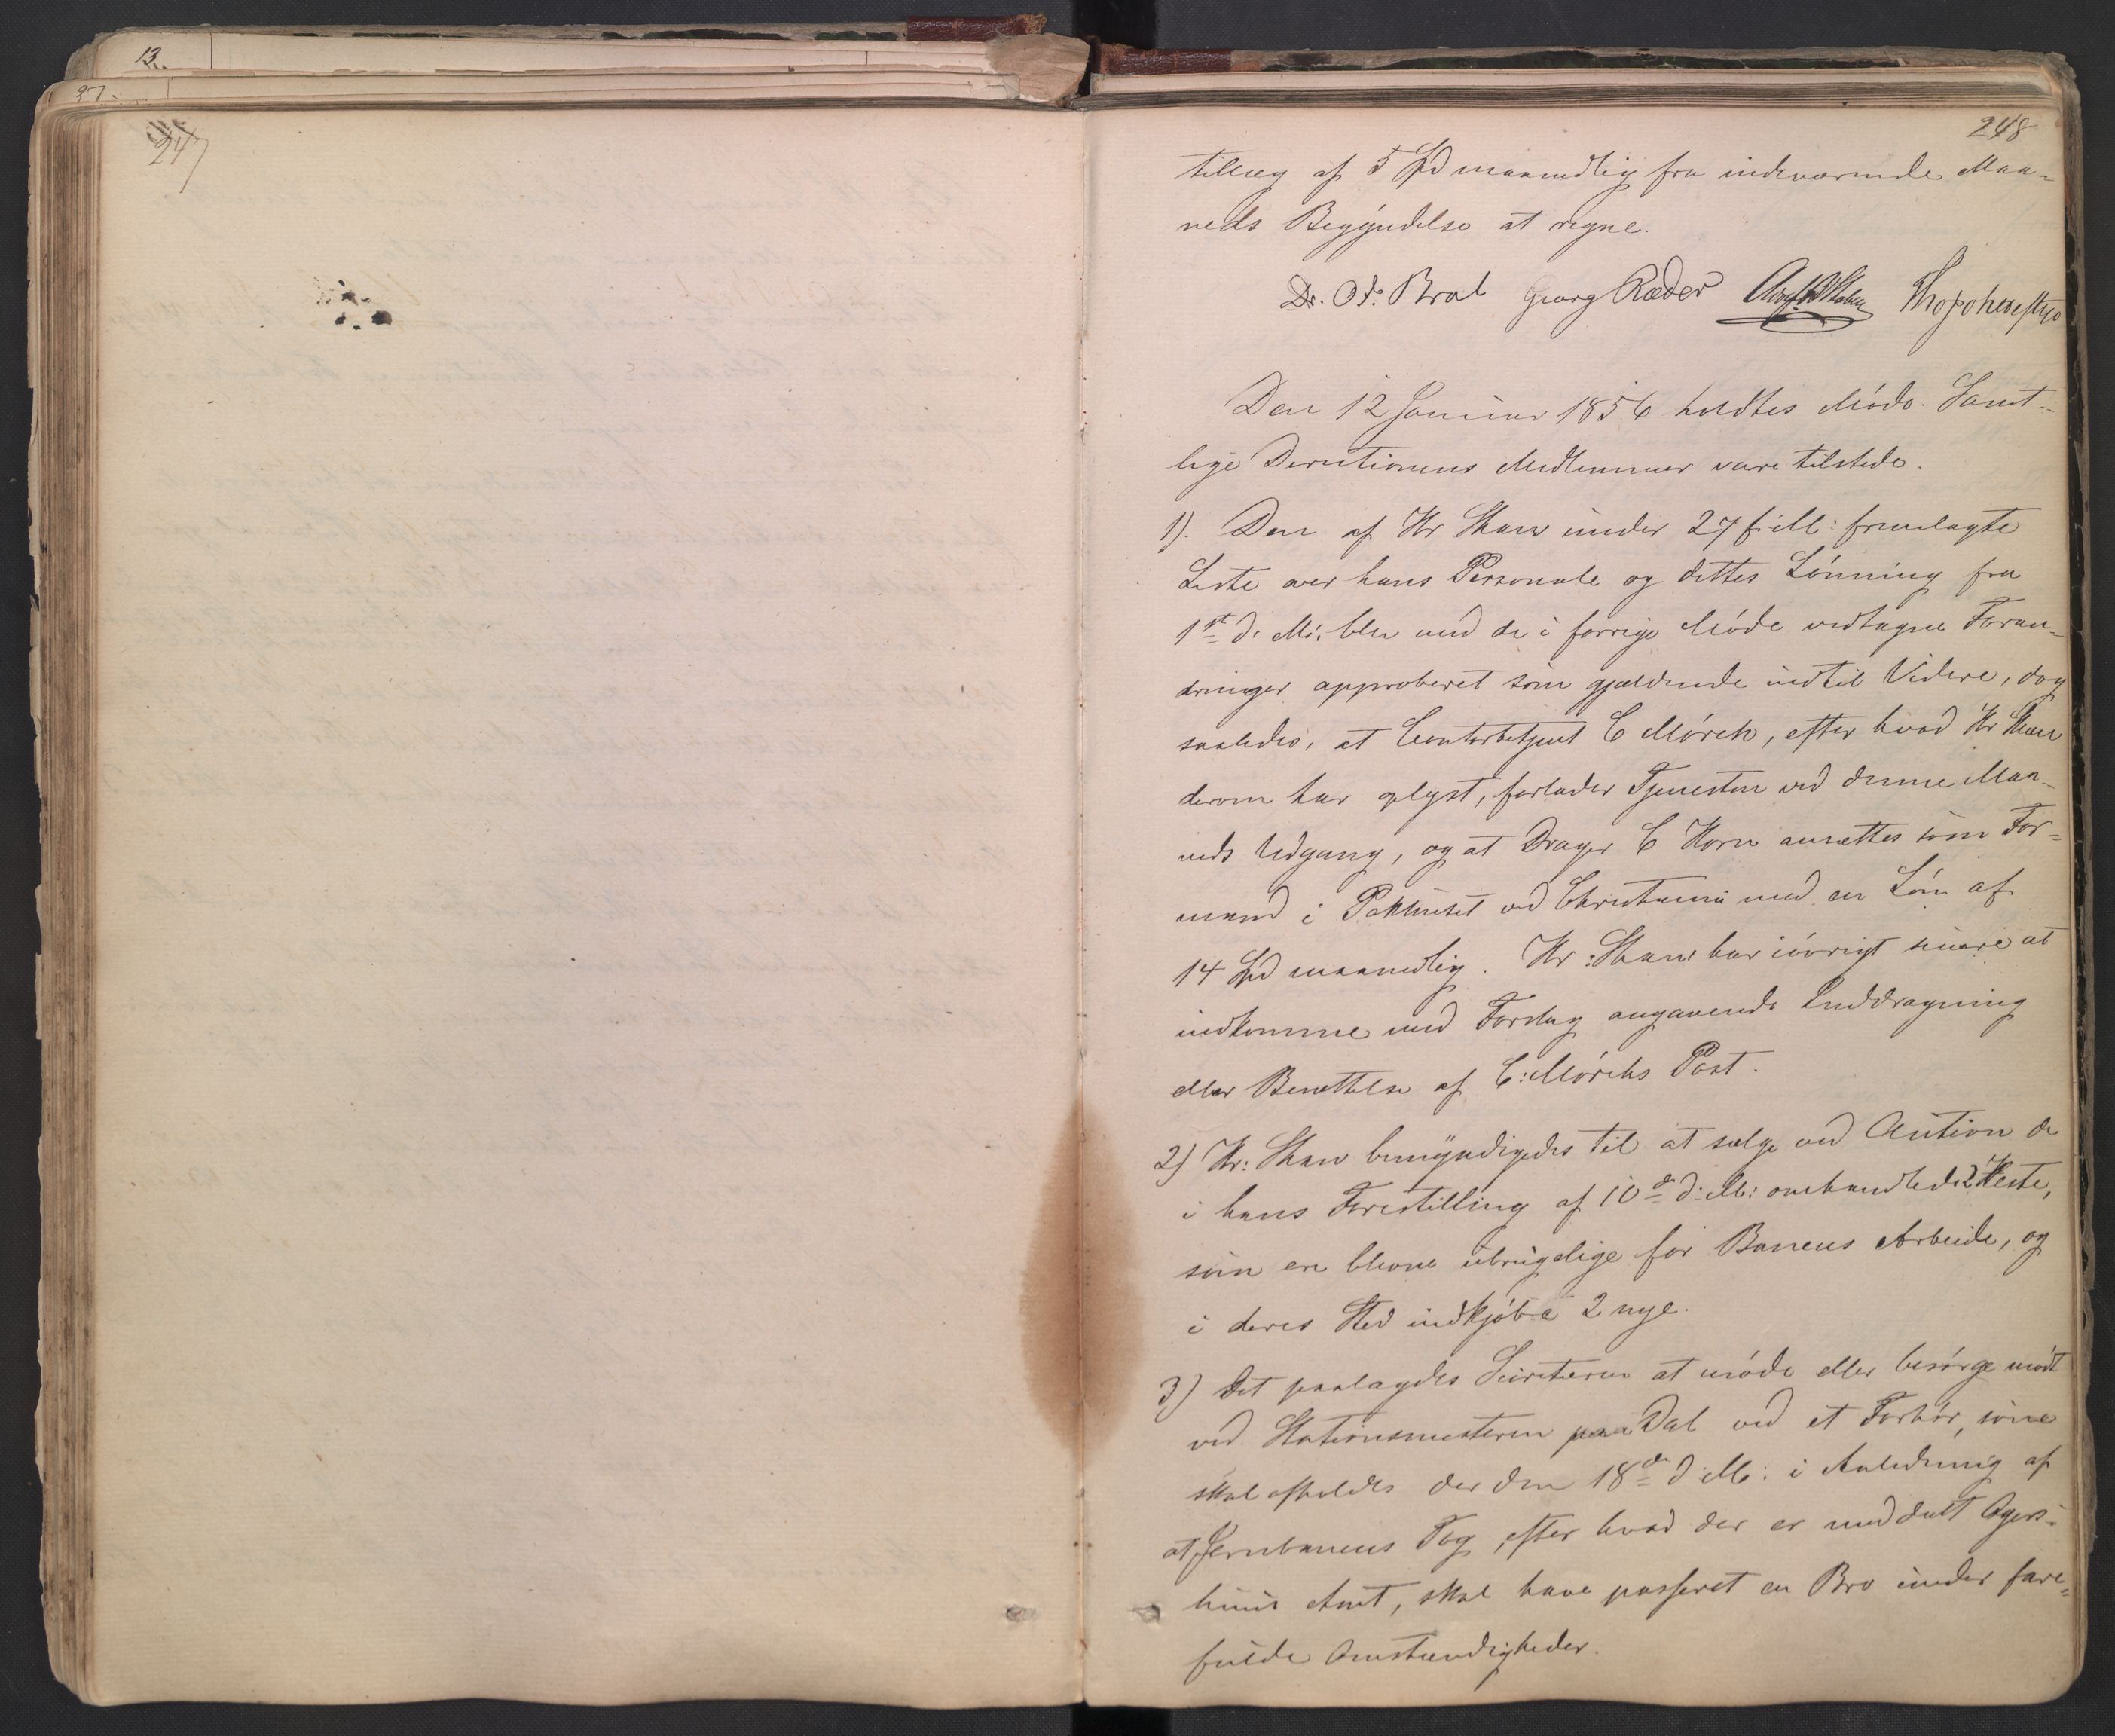 13.
27.
247
248
tillæg af 5 Spd maanedlig fra indeværende Maa-
neds Begyndelse at regne.
Dr. Georg Ræder
Den 12 Januar 1856 holdtes Møde. Samt-
lige Directionens Medlemmer vare tilstede.
1). Den af Hr Shaw under 27 f: M: fremlagte
Liste over hans Personale og dettes Lønning fra
1st d. M: blev med de i forrige Møde vedtagne Foran-
dringer approberet som gjældende indtil Videre, dog
saaledes, at Contorbetjent C Mørch, efter hvad Hr Shaw
derom har oplyst, forlader Tjenesten ved denne Maa-
neds Udgang, og at Drager C Horn ansættes som For-
mand i Pakhuset ved Christiania med en Løn af
14 Spd maanedlig. Hr: Shaw har iøvrigt senere at
indkomme med Forslag angaaende Inddragning
eller Besættelse af C: Mørchs Post.
2) Hr: Shaw bemyndigedes til at sælge ved Auction de
i hans Forestilling af 10de d: M: omhandlede 2 Heste,
som ere blevne ubrugelige for Banens Arbeide, og
i deres Sted indkjøbe 2 nye.
3) Det paalagdes Secretæren at møde eller besørge mødt
ved Stationsmesteren paa Dal ved et Forhør, som
skal afholdes der den 18de d: M: i Anledning af
at Jernbanens Tog, efter hvad der er meddelt Agers-
huus Amt, skal have passeret en Bro under fare-
fulde Omstændigheder.